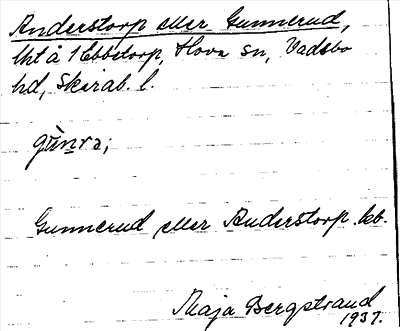 Anderstorp eller Gunnerud,
lht å 1 Ebbetorp, Hova sn, Vadsbo
hd, Skarab. l.
gùnrə;
Gunnerud eller Anderstorp kb.
Maja Bergstrand
1937.